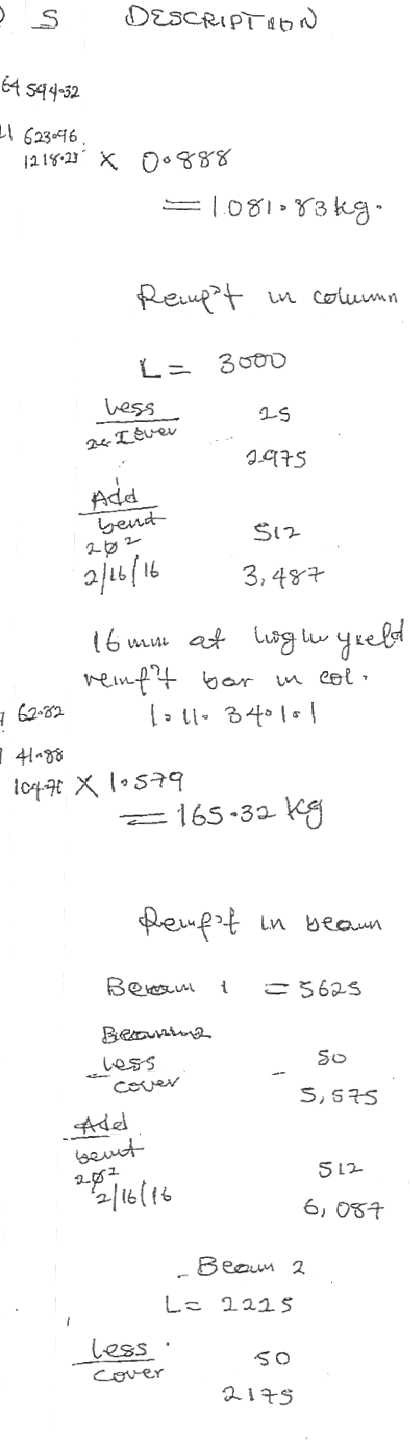 S DESCRIPTION
64 594.32
623.96
1218.28 × 0.888
= 1081.83kg.
Reinf't in column
L = 3000
Less 25
Cover
2975
Add
bend 512
2Ø²
2/16/16 3,487
16mm at high yield
reinf't bar in col.
62.82 1.11.34.1.1
41.88
104.70 × 1.579
= 165.32 kg
Reinf't in beam
Beam 1 = 5625
Less - 50
Cover 5,575
Add
bent 512
2Ø²
2/16/16 6,087
Beam 2
L = 2225
Less 50
Cover 2175